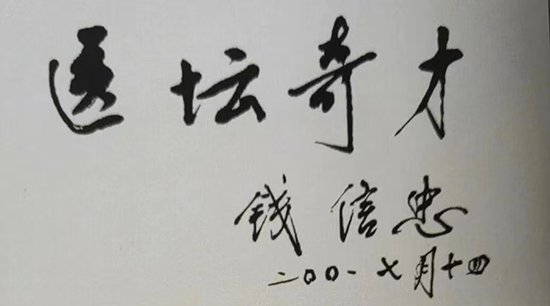 医坛奇才
钱信忠
二〇〇一七月十四